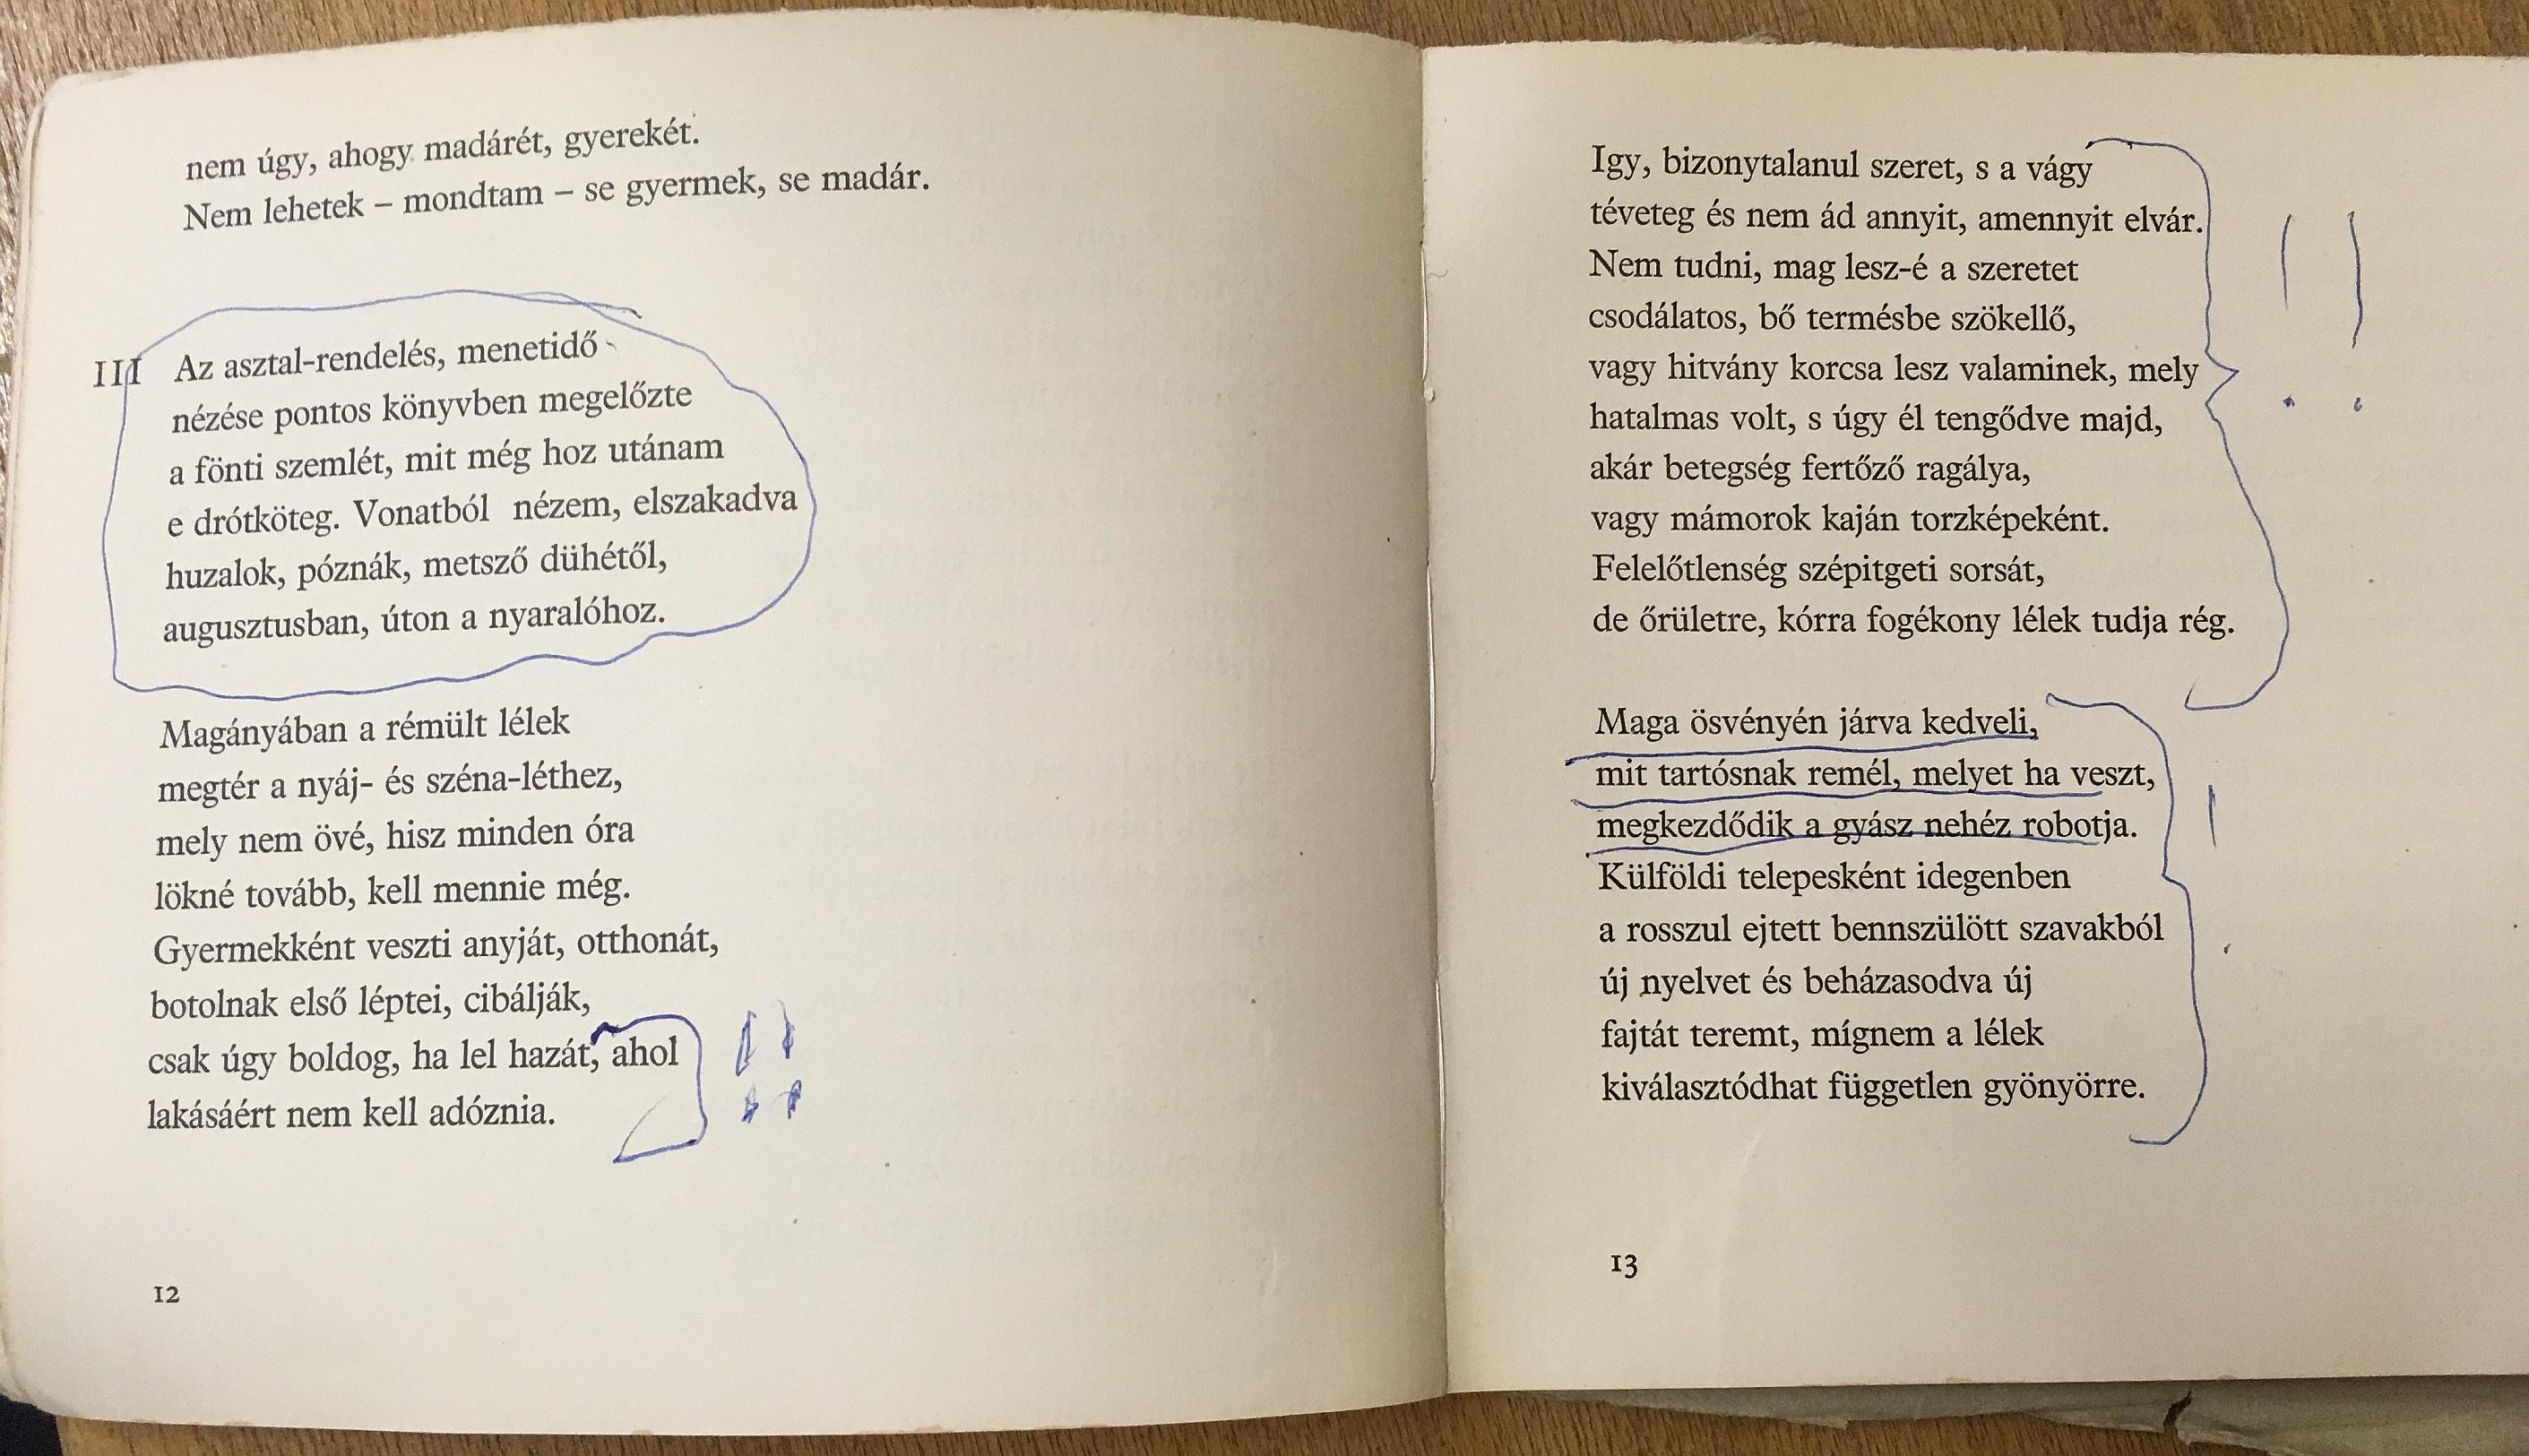 nem úgy, ahogy madárét, gyerekét.
Nem lehetek – mondtam – se gyermek, se madár.
III Az asztal-rendelés, menetidő
nézése pontos könyvben megelőzte
a fönti szemlét, mit még hoz utánam
e drótköteg. Vonatból nézem, elszakadva
huzalok, póznák, metsző dühétől,
augusztusban, úton a nyaralóhoz.
Magányában a rémült lélek
megtér a nyáj- és széna-léthez,
mely nem övé, hisz minden óra
lökné tovább, kell mennie még.
Gyermekként veszti anyját, otthonát,
botolnak első léptei, cibálják,
csak úgy boldog, ha lel hazát, ahol
lakásáért nem kell adóznia.
!!
12
Igy, bizonytalanul szeret, s a vágy
téveteg és nem ád annyit, amennyit elvár.
Nem tudni, mag lesz-é a szeretet
csodálatos, bő termésbe szökellő,
vagy hitvány korcsa lesz valaminek, mely
hatalmas volt, s úgy él tengődve majd,
akár betegség fertőző ragálya,
vagy mámorok kaján torzképeként.
Felelőtlenség szépitgeti sorsát,
de őrületre, kórra fogékony lélek tudja rég.
!!
Maga ösvényén járva kedveli,
mit tartósnak remél, melyet ha veszt,
megkezdődik a gyász nehéz robotja.
Külföldi telepesként idegenben
a rosszul ejtett bennszülött szavakból
új nyelvet és beházasodva új
fajtát teremt, mígnem a lélek
kiválasztódhat független gyönyörre.
!
13